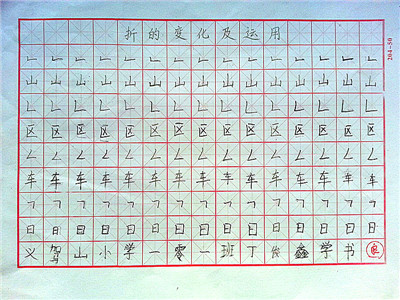 折的变化及运用
𠃊𠃊𠃊𠃊𠃊𠃊𠃊𠃊𠃊𠃊𠃊𠃊𠃊𠃊𠃊
山山山山山山山山山山山山山山山
𠃊𠃊𠃊𠃊𠃊𠃊𠃊𠃊𠃊𠃊𠃊𠃊𠃊𠃊𠃊
区区区区区区区区区区区区区区区
ㄥㄥㄥㄥㄥㄥㄥㄥㄥㄥㄥㄥㄥㄥㄥ
车车车车车车车车车车车车车车车
㇕㇕㇕㇕㇕㇕㇕㇕㇕㇕㇕㇕㇕㇕㇕
日日日日日日日日日日日日日日日
义驾山小学一零一班丁鑫学书良
204-50